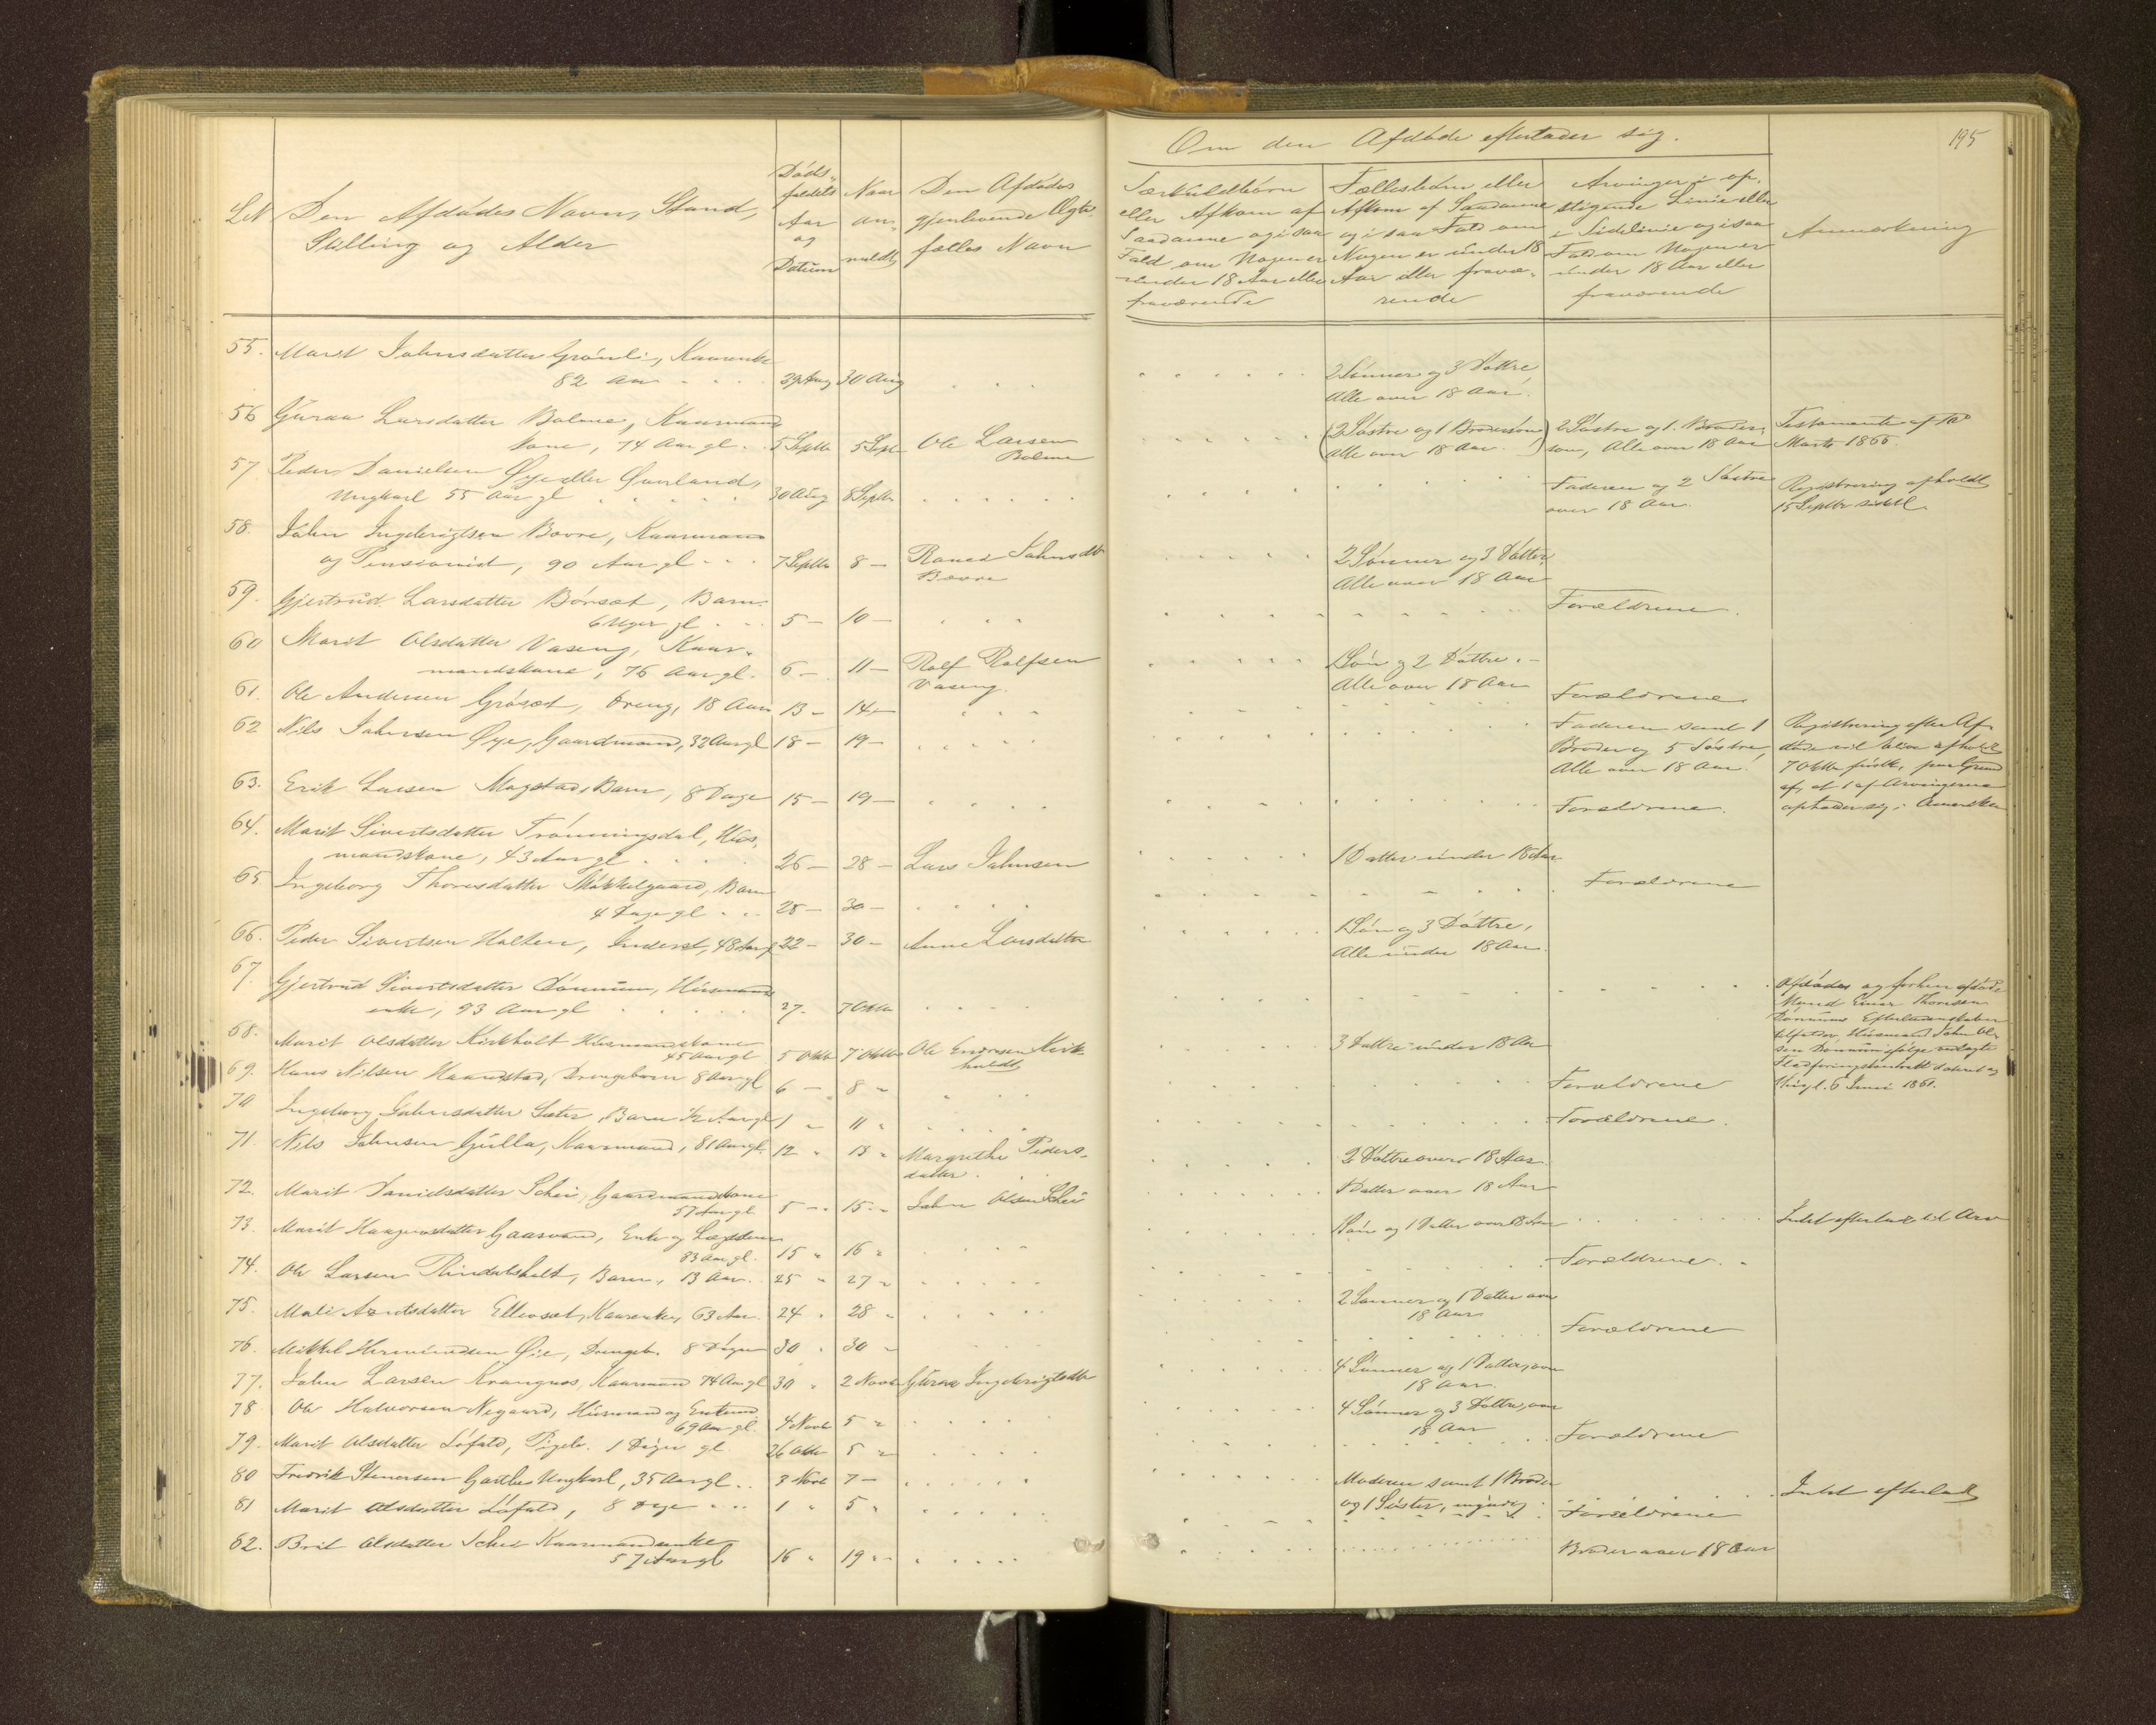 195
Om den Afdøde efterlader sig.
LN
Den Afdødes Navn, Stand,
Stilling og Alder
Døds-
faldets
Aar
og
Datum
Naar
an-
meldt
Den Afdødes
gjenlevende Ægte-
fælles Navn
Særkuldbørn
eller Afkom af
Saadanne og i saa
Fald om Nogen er
under 18 Aar eller
fraværende
Fællesbørn eller
Afkom af Saadanne
og i saa Fald om
Nogen er under 18
Aar eller fravæ-
rende
Arvinger i op-
stigende Linie eller
i Sidelinie og i saa
Fald om Nogen er
under 18 Aar eller
fraværende
Anmærkning
55. Marit Johnsdatter Grønli, Kaarenke
82 Aar 29 Aug 30 Aug 2 Sønner og 3 Døttre,
Alle over 18 Aar.
56 Guraa Larsdatter Bolme, Kaarmands
kone, 74 Aar gl. 5 Septbr 5 Sept Ole Larsen
Bolme
(2 Søstre og 1 Brodersøn
alle over 18 Aar.)
2 Søstre og 1 Broder-
søn, Alle over 18 Aar
Testamente af
Marts 1866.
57 Peder Danielsen Øye eller Qvenland,
Ungkarl 55 Aar gl 30 Aug 8 Septbr Faderen og 2 Søstre
over 18 Aar.
Registrering afholdt
15 Septbr sidstl.
58. John Ingebrigtsen Bovre, Kaarmand
og Pensionist, 90 Aar gl 7 Septbr 8 — Ranei Johnsdtr
Bovre
2 Sønner og 3 Døttre,
Alle over 18 Aar
59. Gjertrud Larsdatter Børset, Barn
6 Uger gl 5 — 10 — Forældrene.
60 Marit Olsdatter Vaseng, Kaar-
mandskone, 76 Aar gl. 6 — 11 — Rolf Rolfsen
Vaseng.
1 Søn og 2 Døttre. —
Alle over 18 Aar
61. Ole Andersen Grøset, Dreng, 18 Aar 13 — 14 — Forældrene
62 Nils Johnsen Øye, Gaardmand, 32 Aar gl 18 — 19 — Faderen samt 1
Broder og 5 Søstre,
Alle over 18 Aar.
Registrering efter Af-
døde vil blive afholdt
7 Oktbr førstk, paa Grund
af, at 1 af Arvingerne
opholder sig i Amerika
63. Erik Larsen Mogstad, Barn, 8 Dage 15 — 19 — Forældrene.
64. Marit Sivertsdatter Trønningsdal, Hus-
mandskone, 43 Aar gl 26 — 28 — Lars Johnsen 1 Datter under 18 Aar
65 Ingeborg Thoresdatter Mikkelgaard, Barn
4 Dage gl 28 — 30 — Forældrene
66. Peder Sivertsen Holten, Inderst, 48 Aar gl 22 — 30 — Anne Larsdatter 1 Søn og 3 Døttre,
Alle under 18 Aar.
67. Gjertrud Sivertsdatter Dønnum, Husmands
enke, 93 Aar gl 27 — 7 Oktbr
Afdødes og forhen afdøde
Mand Einar Thoresen
Dønnums Efterladenskaber
tilfalder Husmand John Ol-
sen Dønnum ifølge vedlagte
Fledføringskontrakt dateret og
thingl. 6 Juni 1861.
68. Marit Olsdatter Kirkholt Husmandskone
45 Aar gl 5 Oktbr 7 Oktbr Ole Endresen Kirk-
holdt
3 Døttre under 18 Aar
69. Hans Nilsen Haandstad, Drengebarn 8 Aar gl 6 — 8 " Forældrene
70 Ingeborg Johnsdatter Sæter, Barn 1/2 Aar gl 1 " 11 " Forældrene.
71. Nils Johnsen Gulla, Kaarmand, 81 Aar gl. 12 " 13 " Margrethe Peders-
datter.
2 Døttre over 18 Aar
72. Marit Danielsdatter Schei, Gaardmandskone
57 Aar gl. 5 — 15 — John Olsen Schei 1 Datter over 18 Aar
73. Marit Haagensdatter Gaasvand, Enke og Lægdslem
83 Aar gl. 15 " 16 " 1 Søn og 1 Datter over 18 Aar Intet efterladt til Arv
74. Ole Larsen Rindalsholt, Barn, 13 Aar. 25 " 27 " Forældrene.
75. Mali Arntsdatter Ellevset, Kaarenke, 63 Aar. 24 " 28 " 2 Sønner og 1 Datter over
18 Aar
76. Mikkel Hermundsen Øie, Drengeb. 8 Døgn 30 " 30 " Forældrene
77. John Larsen Krangnes, Kaarmand 74 Aar gl 30 " 2 Novbr Guraa Ingebrigtsdtr 4 Sønner og 1 Datter, over
18 Aar.
78 Ole Halvorsen Negaard, Husmand og Enkem.
69 Aar gl. 4 Novbr 5 " 4 Sønner og 3 Døttre, over
18 Aar
79. Marit Olsdatter Løfald, Pigeb. 1 Døgn gl. 26 Oktbr 5 " Forældrene
80 Fredrik Stenersen Garthe Ungkarl, 35 Aar gl. 3 Novb 7 — Moderen samt 1 Broder
og 1 Søster, myndig. Intet efterladt
81 Marit Olsdatter Løfald, 8 Dage 1 " 5 " Forældrene
82. Brit Olsdatter Schei Kaarmandsenke
57 Aar gl 16 " 19 " Broder over 18 Aar